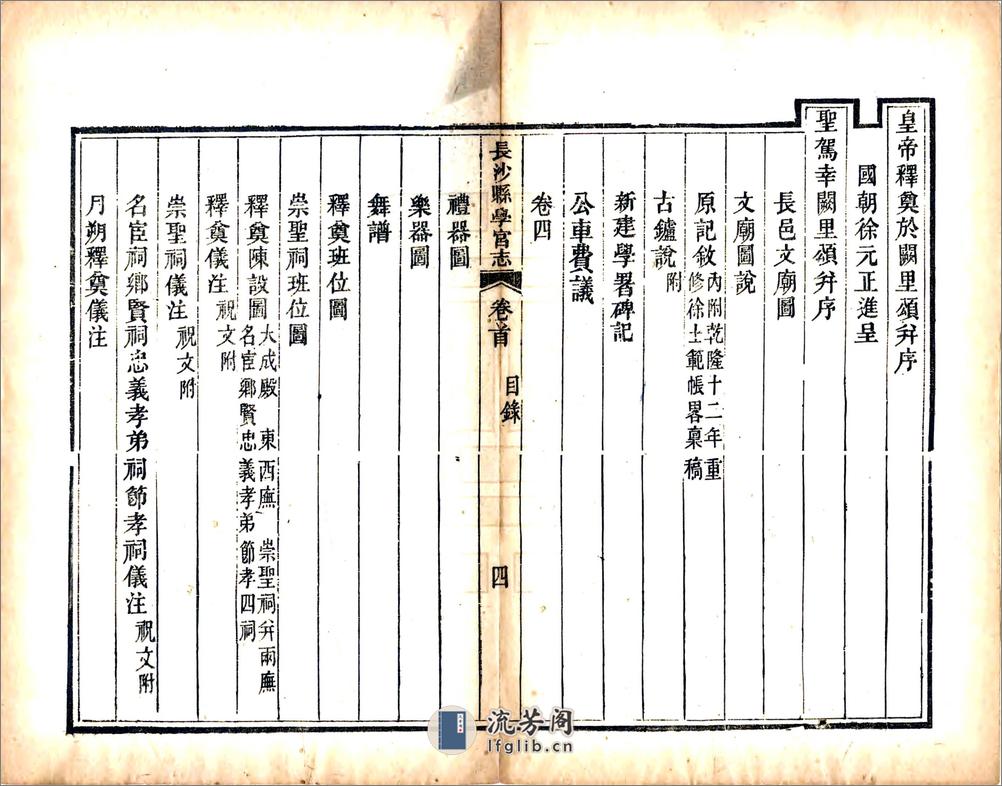 皇帝釋奠於闕里頌幷序
國朝徐元正進呈
聖駕幸闕里頌幷序
長邑文廟圖
文廟圖說
原記敘 內附乾隆十二年重
修徐士範帳畧稾稿
古鑪說 附
新建學署碑記
公車費議
卷四
長沙縣學宮志 卷首 目錄 四
禮器圖
樂器圖
舞譜
釋奠班位圖
崇聖祠班位圖
釋奠陳設圖 大成殿 東西廡 崇聖祠幷兩廡
名宦鄉賢忠義孝弟節孝四祠
釋奠儀注 祝文附
崇聖祠儀注 祝文附
名宦祠鄉賢祠忠義孝弟祠節孝祠儀注 祝文附
月朔釋奠儀注
流芳阁
lfglib.cn